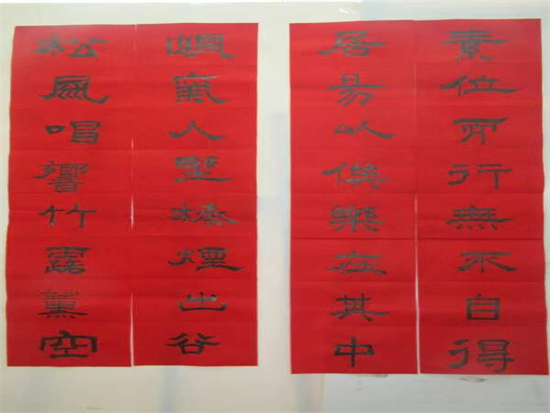 素位而行無不自得
居易以俟樂在其中
嶼人煙出谷
松風唱響竹露薰空